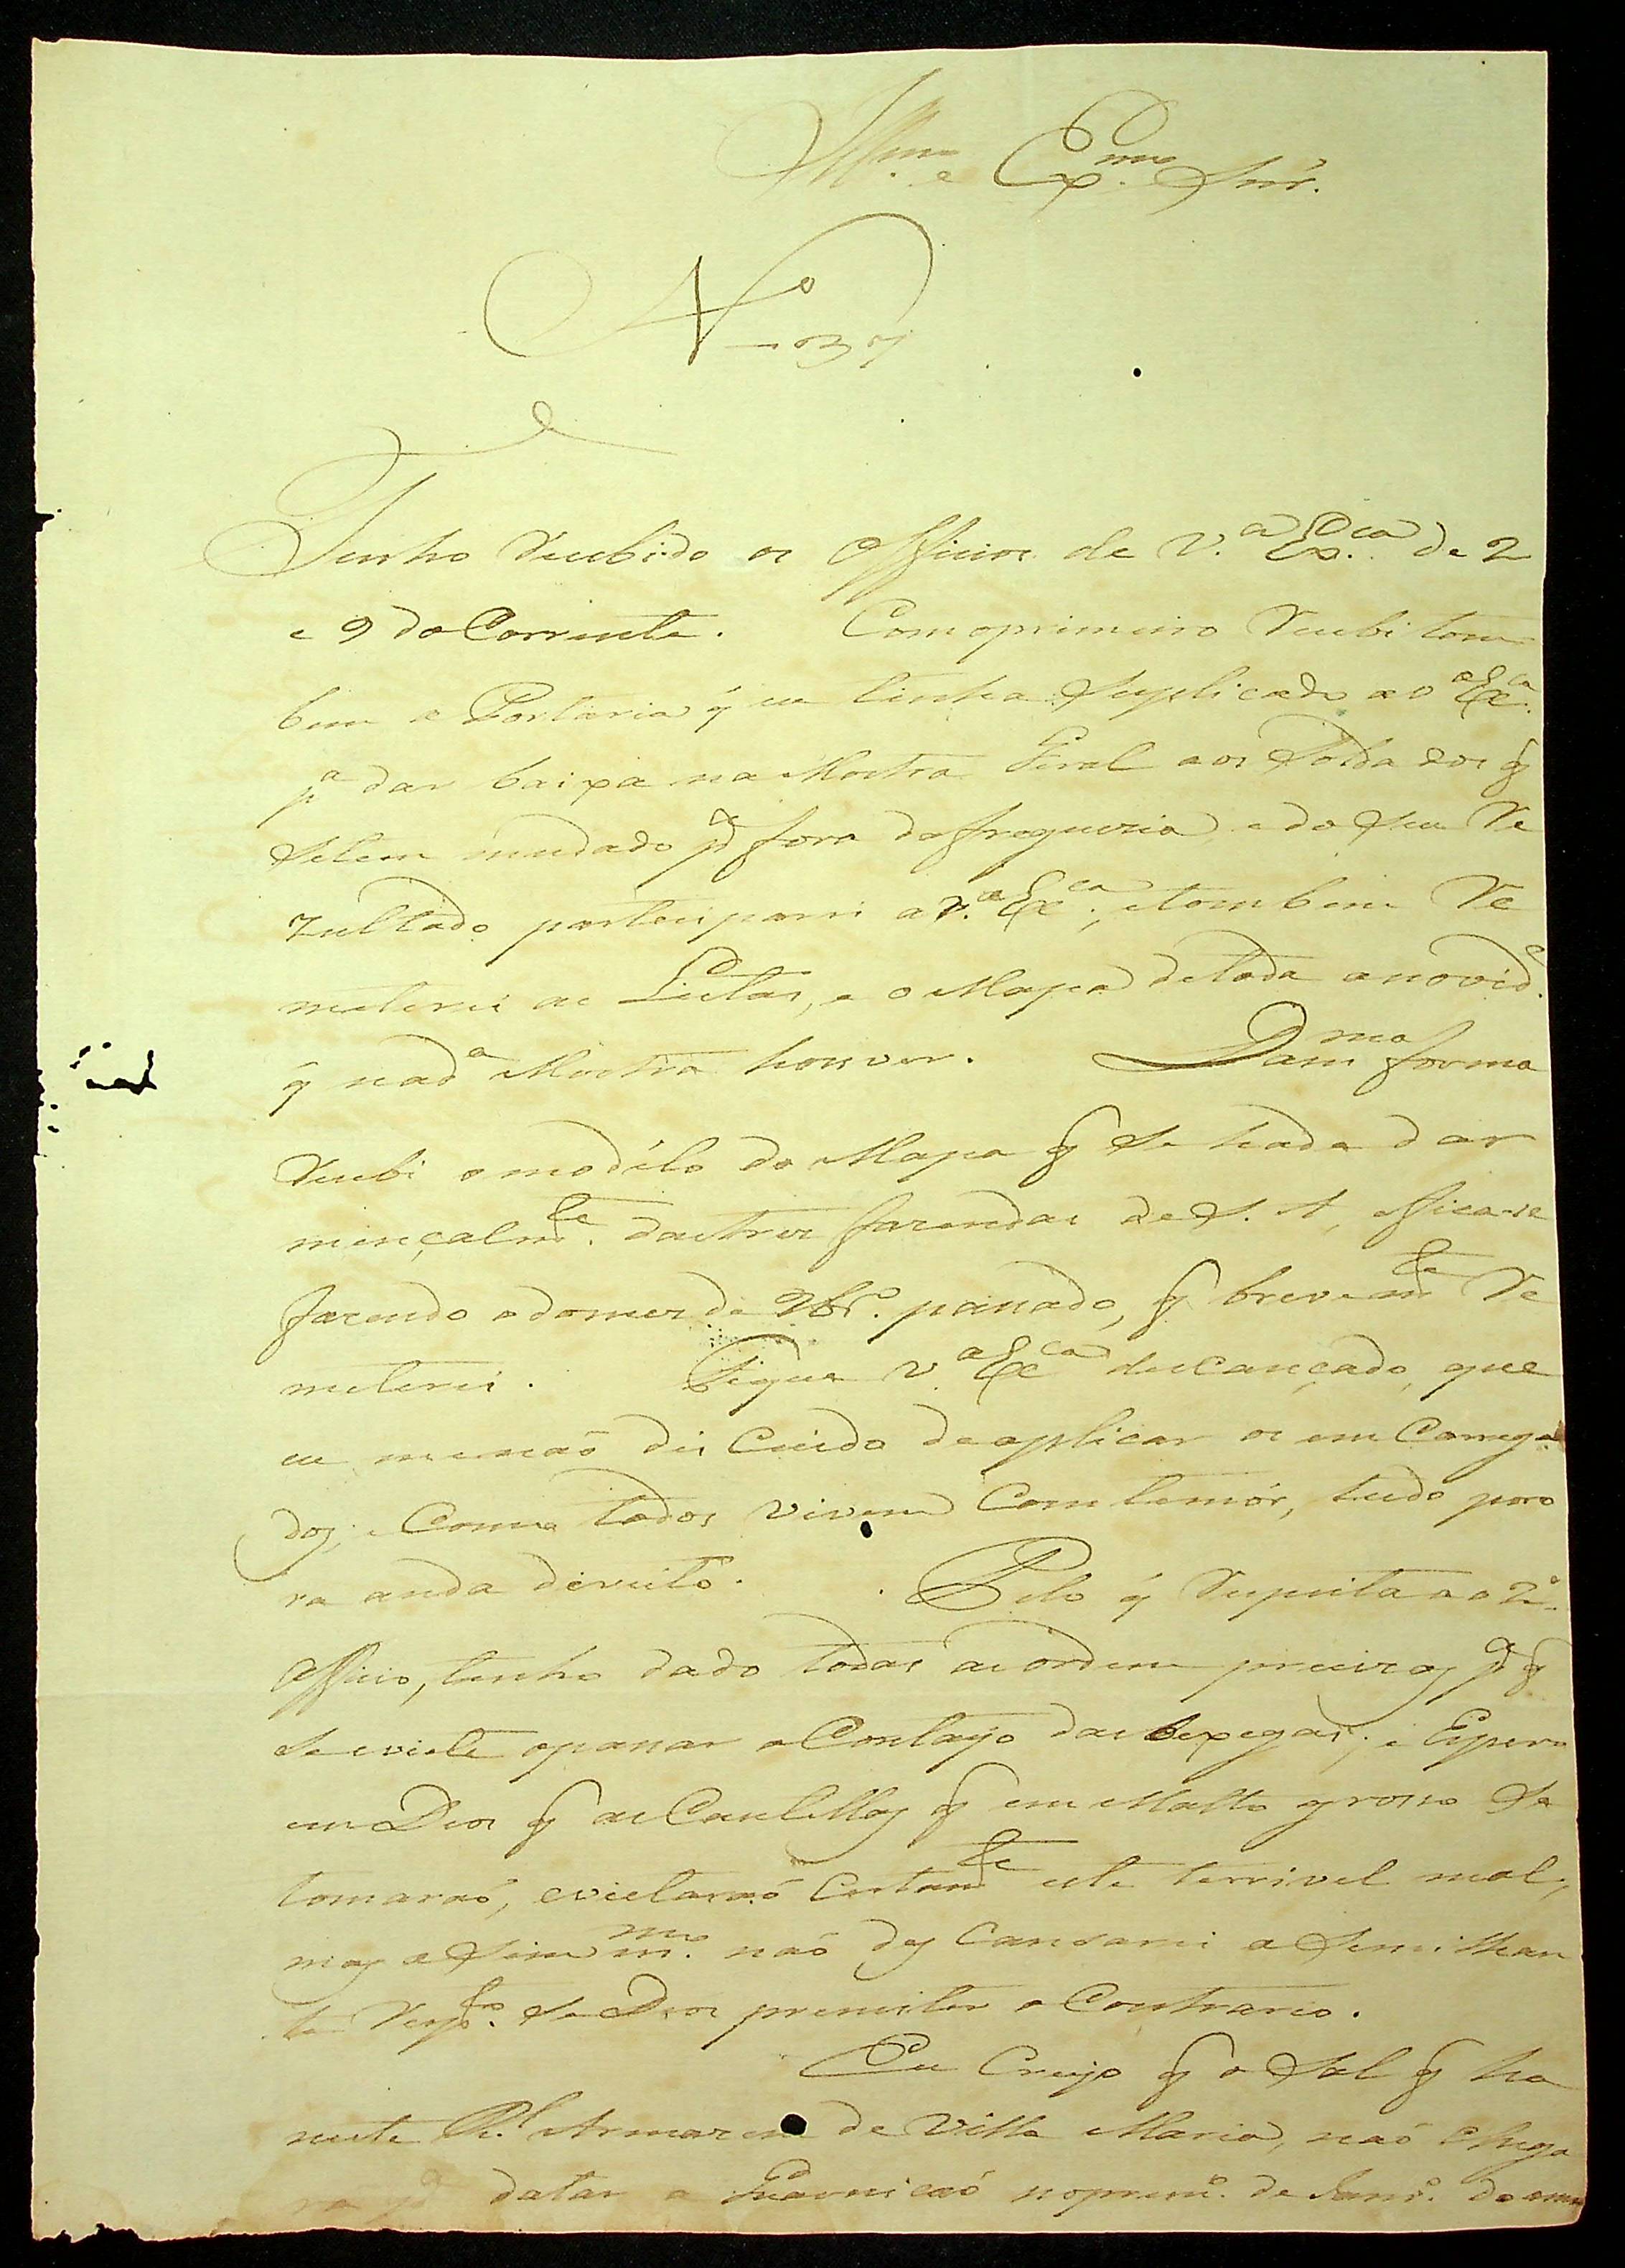 Ill.mo e Ex.mo Snr.
N.o 37
Tenho recebido os Officios de V.a Ex.cia de 2
e 9 do Corrente. Com o primeiro recebi tam
bem a Portaria q̃ eu tinha suplicado a V.a Ex.ca
p.a dar baixa na Mostra Geral aos Soldados q̃
setem mudado p.a fora da freguezia, e do seu Re
zultado parteciparei a V.a Ex.ca; e tambem Re
meterei as Listas, e o Mapa detoda a novid.e
q̃ nad.a Mostra houver. Dam.ma forma
recebi o modélo do Mapa q̃ se hade dar
mençalm.te das tres fazendas de S. A, e fica-se
fazendo o domez de 9br.o passado, q̃ brevem.te Re
meterei. Fique V.a Ex.ca descançado, que
eu menaõ dis Cuido de aplicar os em Carrega
dos, e Como todos vivem Com temór, tudo pora
ra anda direito. Pelo q̃ respeita ao 2.o
Officio, tenho dado todas as ordens precizas p.a q̃
se evite o passar o Contajo das bexegas; e Espero
em Deos q̃ as Cautellas q̃ em Matto grosso se
tomaraõ, evietaraõ Certam.te este terrivel mal;
mas a Sim m.mo naõ des Cansarei a Semilhan
te resp.to se Deos premiter o Contrario.
Eu Creyo q̃ o Sal q̃ ha
neste R.l Armazem de Villa Maria, naõ Chega
ra p.a datar a Guarniçaõ no prim.o de Janr.o do anno